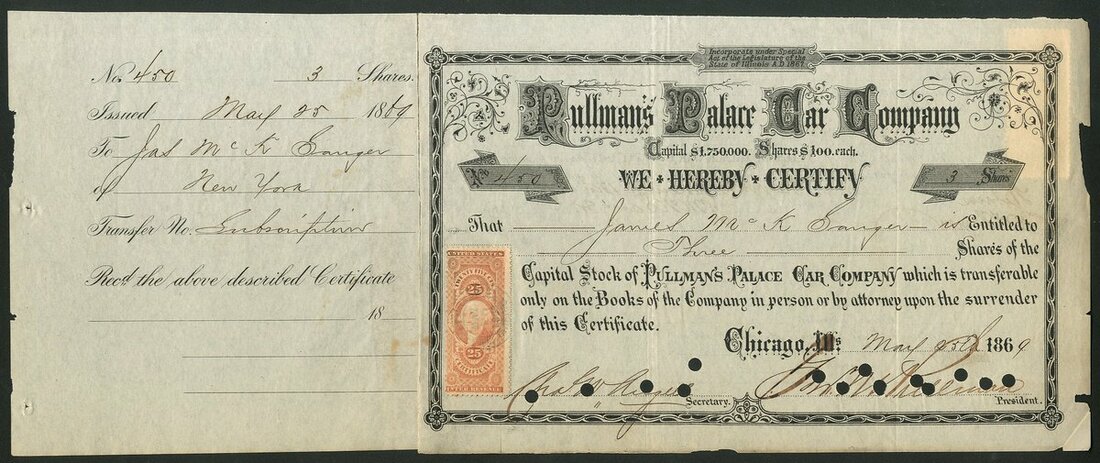 No. 450 3 Shares.
Issued May 25 1869
To Jas Mc K Sanger
of New York
Transfer No. Subscription
Recd. the above described Certificate
18
Incorporate under Special
Act of the Legislature of the
State of Illinois A.D 1867.
Pullman's Palace Car Company
Capital $1,750.000. Shares $100. each.
No. 450
WE HEREBY CERTIFY
3 Shares
That James Mc K Sanger is Entitled to
Three Shares of the
Capital Stock of PULLMAN'S PALACE CAR COMPANY which is transferable
only on the Books of the Company in person or by attorney upon the surrender
of this Certificate.
Chicago, Ills May 25th 1869
UNITED STATES
TWENTY FIVE CENTS
25
25
CERTIFICATE
INTER. REVENUE
Secretary.
Geo. M. Pullman
President.